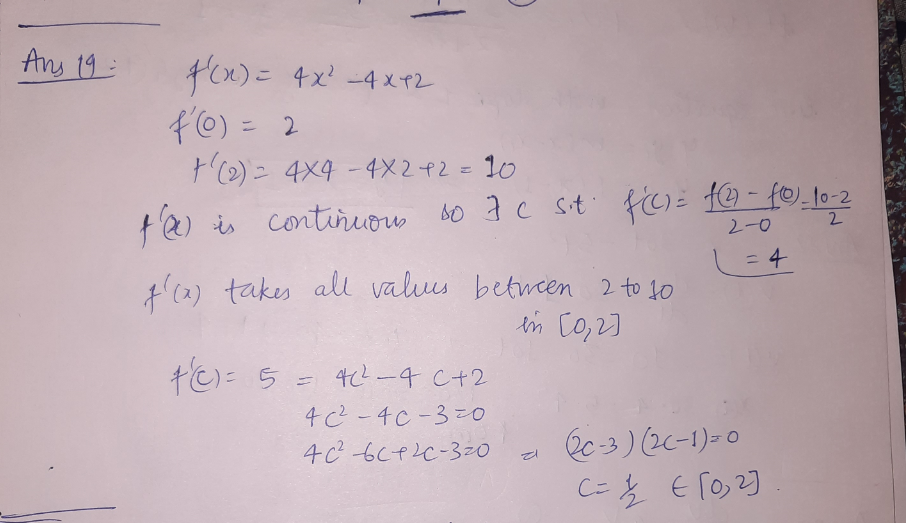 Ans 19 :
f'(x) = 4x² - 4x + 2
f'(0) = 2
f'(2) = 4×4 - 4×2 + 2 = 10
f'(x) is continuous so ∃ c s.t. f'(c) = f(2) - f(0) / 2-0 = 10-2 / 2
= 4
f'(x) takes all values between 2 to 10
in [0,2]
f'(c) = 5 = 4c² - 4c + 2
4c² - 4c - 3 = 0
4c² - 6c + 2c - 3 = 0 = (2c-3)(2c-1) = 0
c = 1/2 ∈ [0,2].